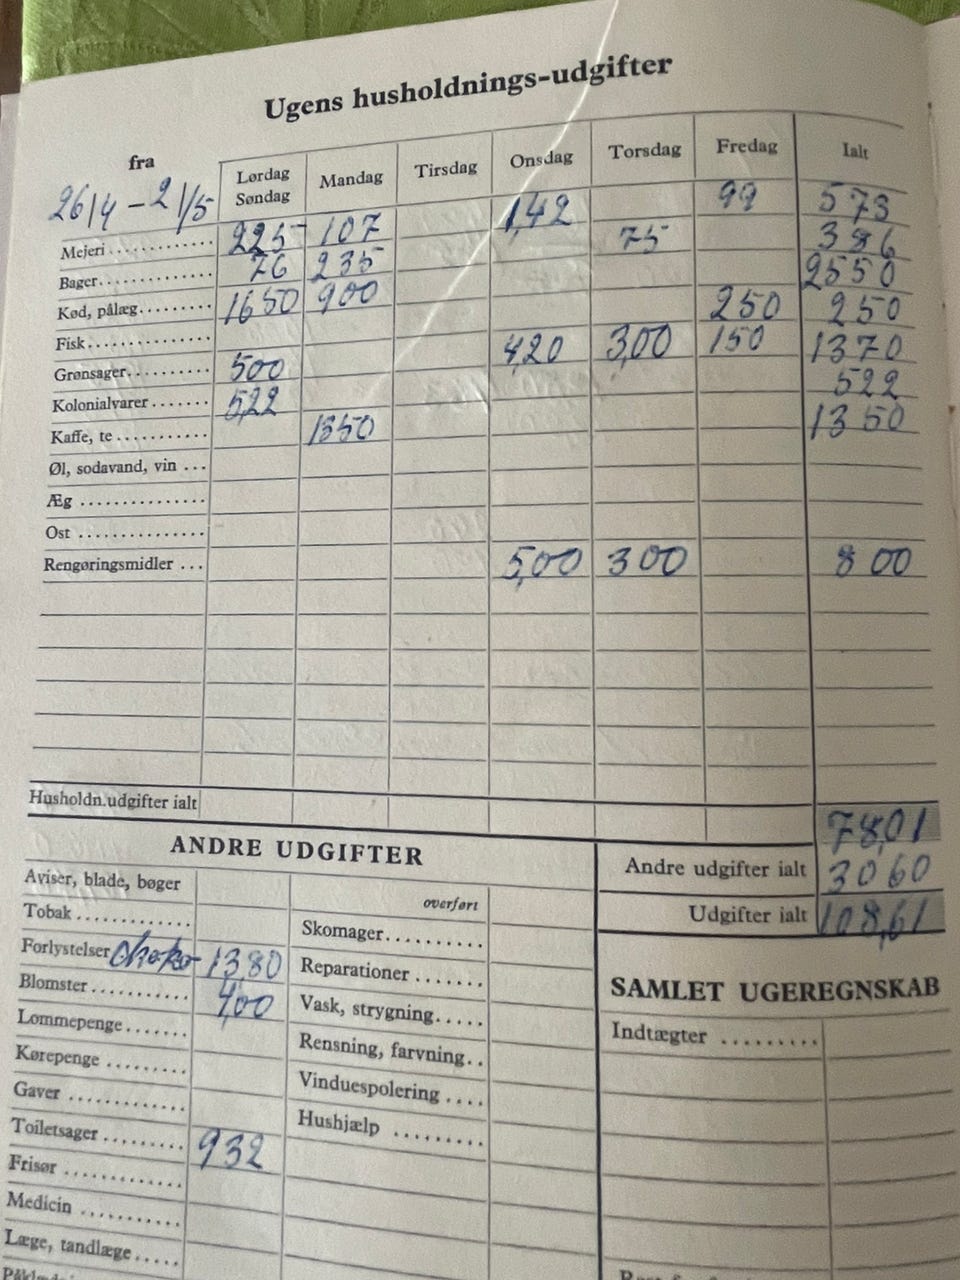 Ugens husholdnings-udgifter
fra Lørdag Søndag Mandag Tirsdag Onsdag Torsdag Fredag Ialt
26/4 - 2/5
Mejeri .......... 225 107 1,42 99 573
Bager.......... 76 235 75 386
Kød, pålæg......... 1650 900 2550
Fisk............ 250 250
Grønsager.......... 500 4,20 3,00 150 1370
Kolonialvarer ....... 5,22 522
Kaffe, te .......... 1350 1350
Øl, sodavand, vin ...
Æg ..............
Ost ..............
Rengøringsmidler ... 5,00 300 800
Husholdn.udgifter ialt 78,01
ANDRE UDGIFTER
Andre udgifter ialt 3060
Udgifter ialt 108,61
Aviser, blade, bøger
Tobak ............
Forlystelser 1380
Blomster ........... 4,00
Lommepenge.......
Kørepenge .........
Gaver ............
Toiletsager ......... 932
Frisør .............
Medicin ...........
Læge, tandlæge.....
overført
Skomager..........
Reparationer .......
Vask, strygning.....
Rensning, farvning..
Vinduespolering ....
Hushjælp .........
SAMLET UGEREGNSKAB
Indtægter .........